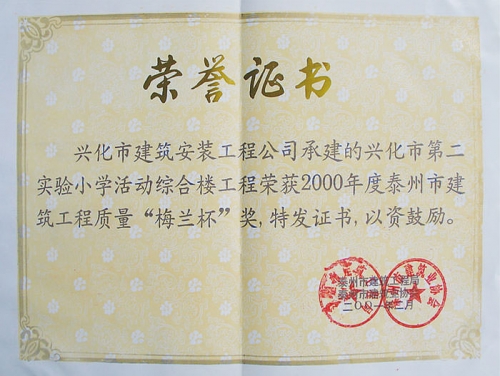 荣誉证书
兴化市建筑安装工程公司承建的兴化市第二
实验小学活动综合楼工程荣获2000年度泰州市建
筑工程质量“梅兰杯”奖,特发证书,以资鼓励。
泰州市建筑工程局
泰州市建筑业协会
二〇〇一年三月